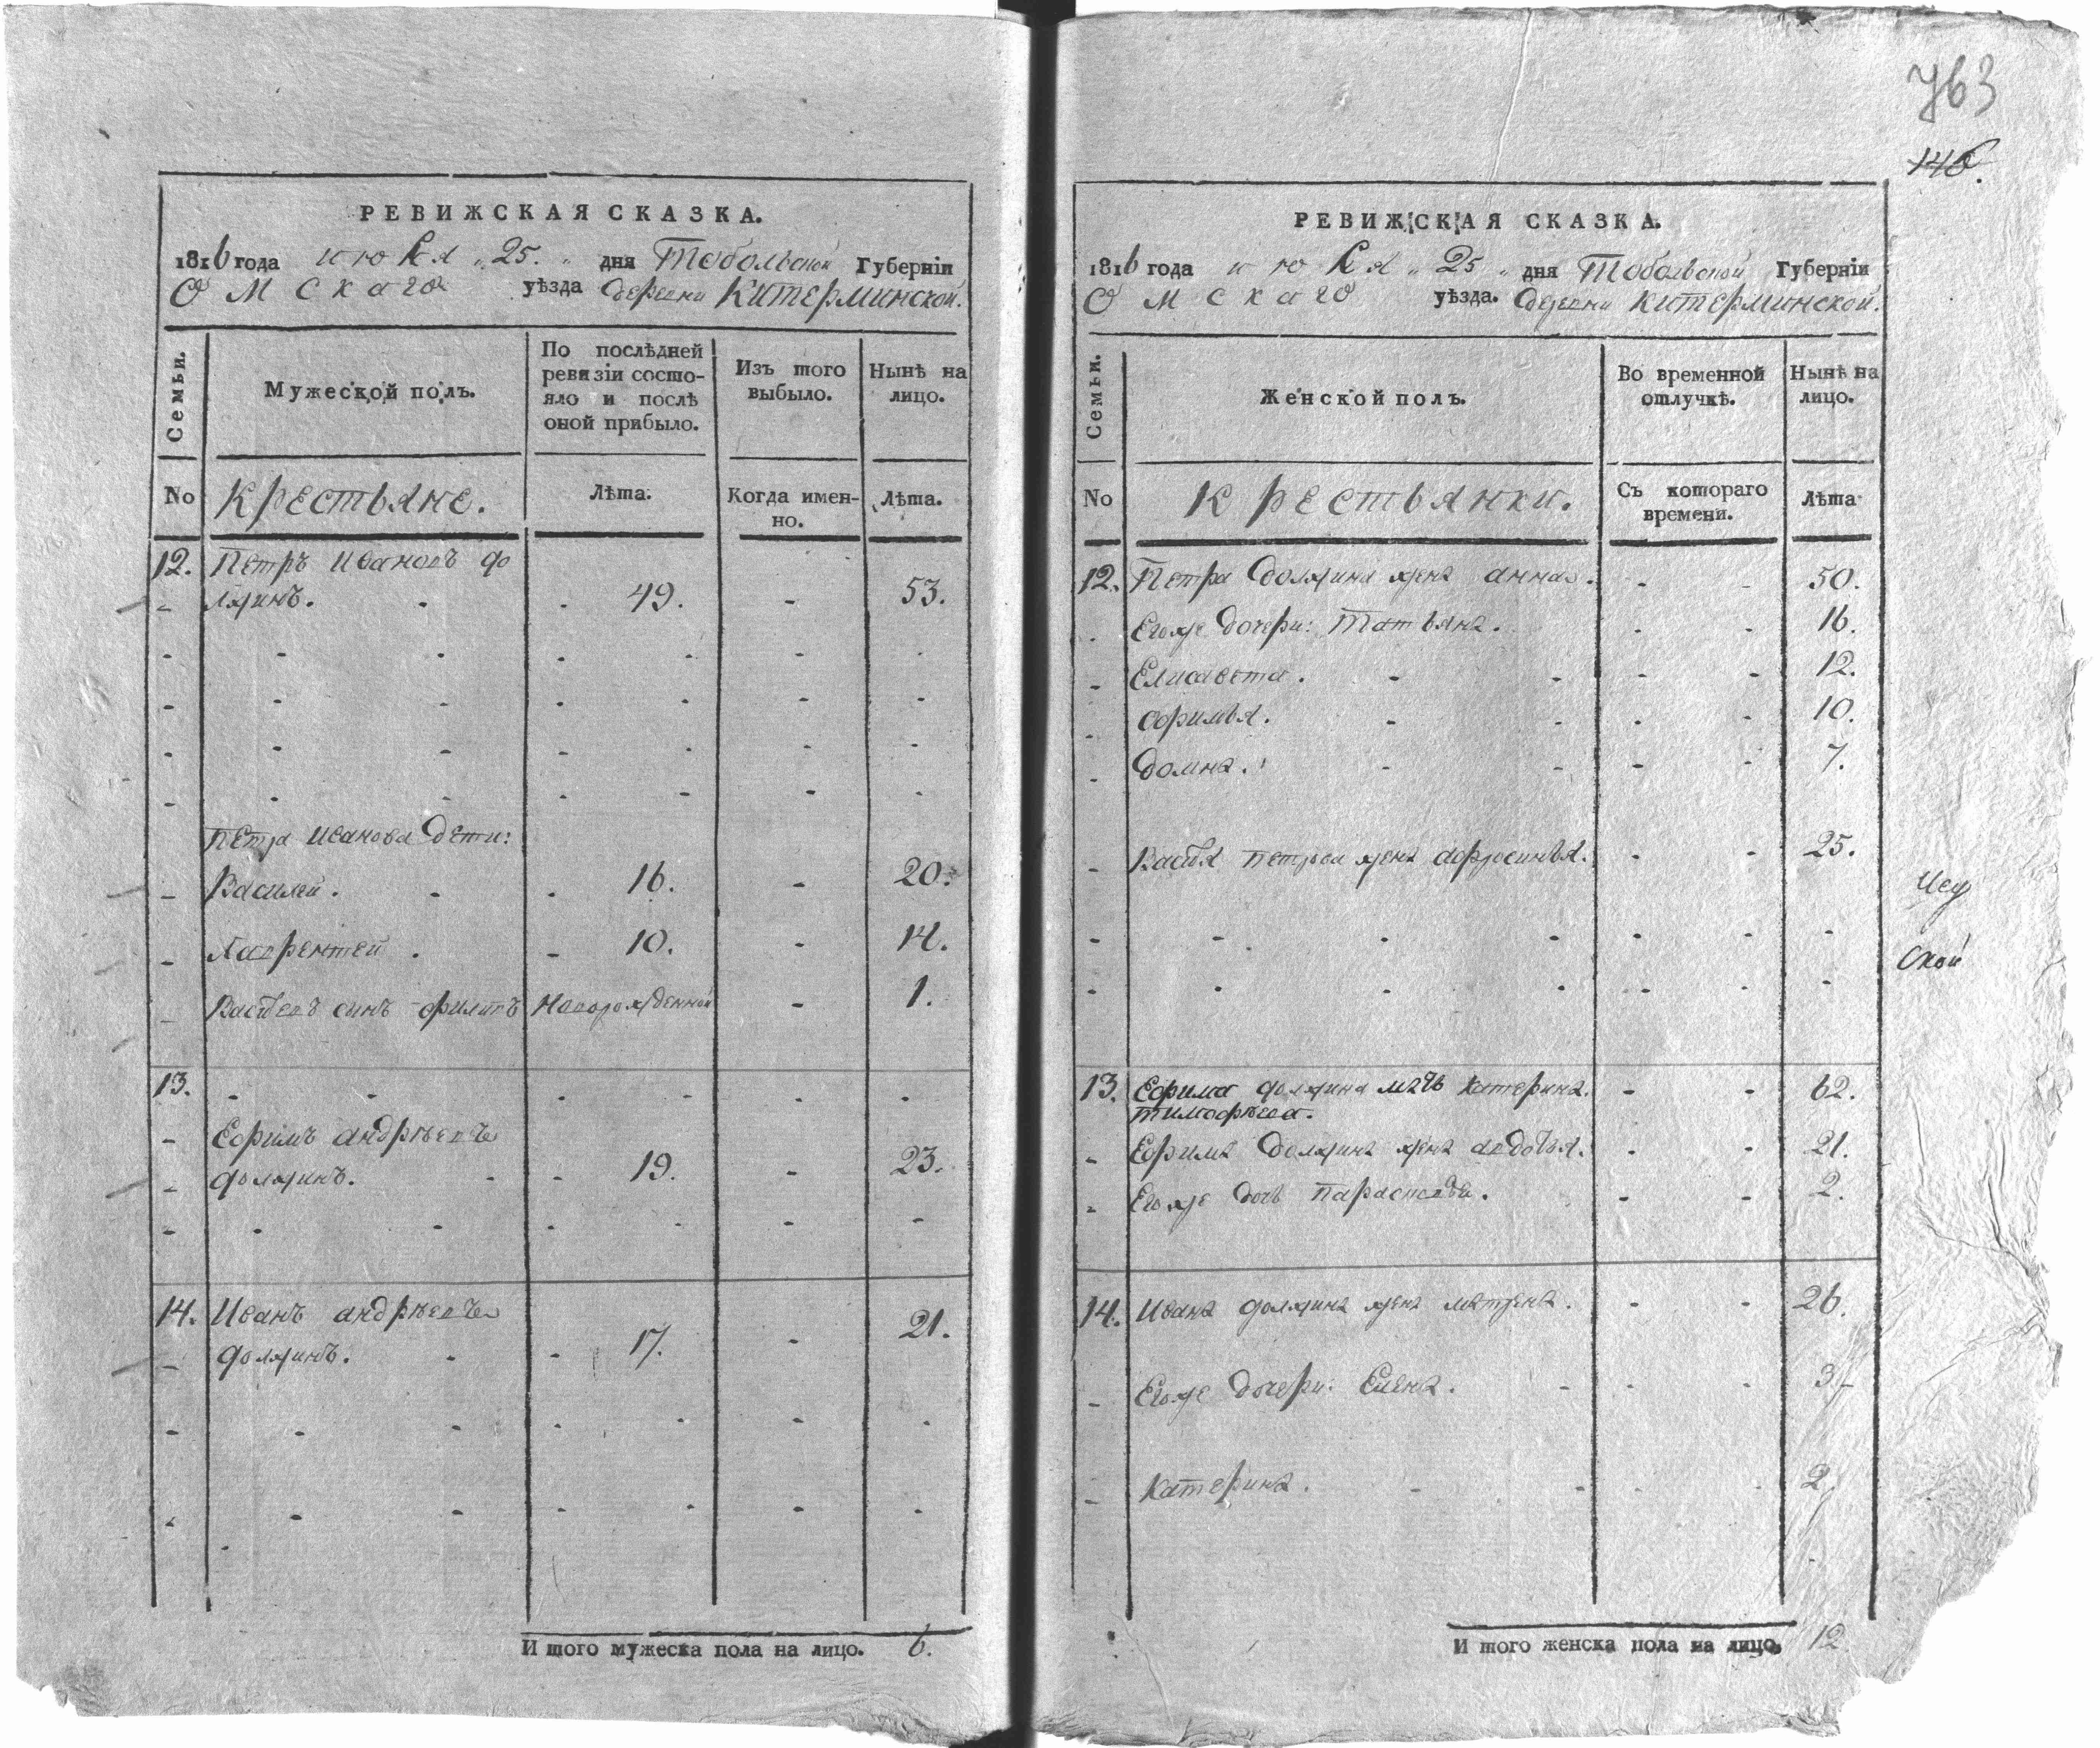 763
146.
РЕВИЖСКАЯ СКАЗКА.
1816 года июля „25.„ дня Тобольской Губерніи
Омскаго уѣзда деревни Китерминской.
Семьи.
Мужеской полъ.
По послѣдней ревизіи состояло и послѣ оной прибыло.
Изъ того выбыло.
Нынѣ на лицо.
No
Крестьяне.
Лѣта.
Когда именно.
Лѣта.
12. Петръ Ивановъ до
лжинъ. 49. - 53.
Петра Иванова дети:
Василей. 16. - 20.
Лаврентей. 10. - 14.
Васильевъ сынъ Филипъ Новорожденной - 1.
13.
Ефимъ андрѣевъ
должинъ. 19. - 23.
14. Иванъ андрѣевъ
должинъ. 17. - 21.
И того мужеска пола на лицо. 6.
РЕВИЖСКАЯ СКАЗКА.
1816 года июля „25„ дня Тобольской Губерніи
Омскаго уѣзда. деревни Китерминской.
Семьи.
Женской полъ.
Во временной отлучкѣ.
Нынѣ на лицо.
No
Крестьянки.
Съ котораго времени.
Лѣта
12. Петра должина жена анна. - - 50.
Егоже дочери: Татьяна. - - 16.
Елисавета. - - 12.
Афимья. - - 10.
Домна. - - 7.
Петрова жена афросинья. - - 25.
13. Ефима должина мать катерина - - 62.
тимофѣева.
Ефима должина жена авдотья. - - 21.
Егоже дочь парасковья. - - 2.
14. Ивана должина жена матрена. - - 26.
Егоже дочери: Елена. - - 3
Катерина. - - 2
И того женска пола на лицо. 12.
ской